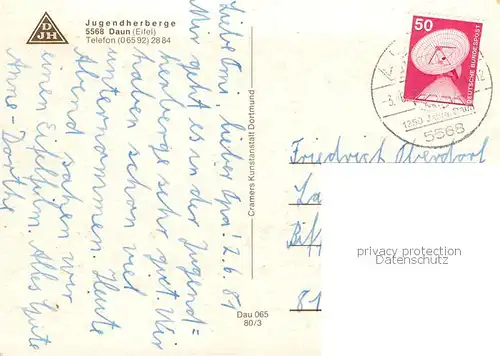 Jugendherberge
5568 Daun (Eifel)
Telefon (06592) 2884
DJH
Liebe Omi, lieber Opa! 2.6.81
Mir geht es in der Jugend=
herberge sehr gut. Wir
haben schon viel
unternommen. Heute
Abend sahen wir
einen Eifelfilm. Alles Gute
Anne-Dorthe
Cramers Kunstanstalt Dortmund
Dau 065
80/3
50
DEUTSCHE BUNDESPOST
5568
Friedrich Oberdorf
81
privacy protection
Datenschutz